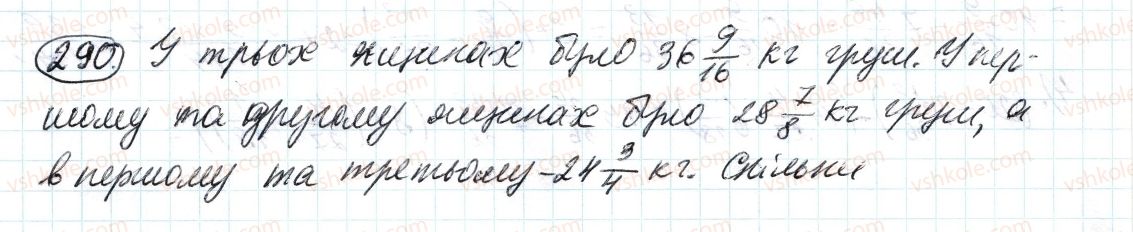 290. У трьох ящиках було 36 9/16 кг груш. У пер-
шому та другому ящиках було 28 7/8 кг груш, а
в першому та третьому - 24 3/4 кг. Скільки